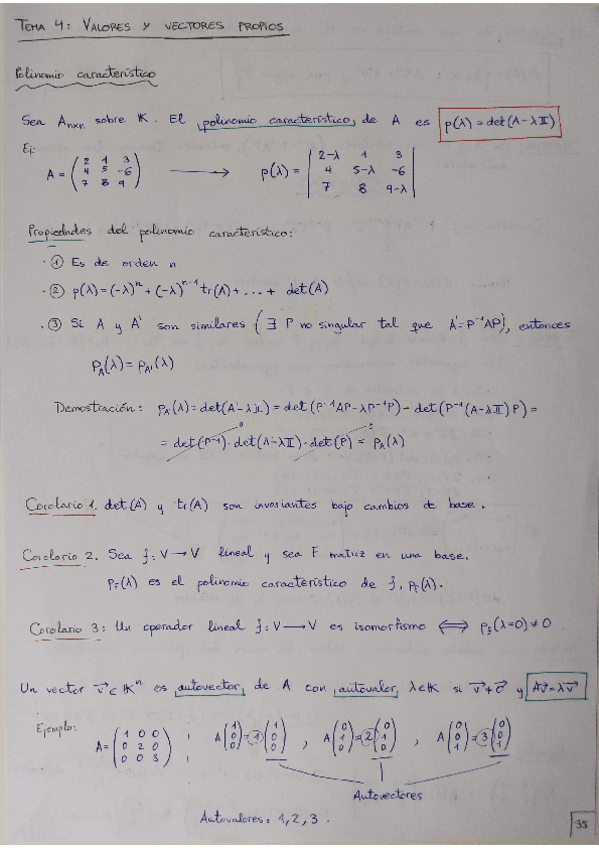 TEMA 4: VALORES Y VECTORES PROPIOS
Polinomio característico
Sea Anxn sobre K. El polinomio característico de A es p(λ) = det(A - λII)
Ej:
A = ( 2 1 3 / 4 5 -6 / 7 8 9 ) → p(λ) = | 2-λ 1 3 / 4 5-λ -6 / 7 8 9-λ |
Propiedades del polinomio característico:
· ① Es de orden n
· ② p(λ) = (-λ)^n + (-λ)^(n-1) tr(A) + ... + det(A)
· ③ Si A y A' son similares (∃ P no singular tal que A' = P^-1AP), entonces
P_A(λ) = P_A'(λ)
Demostración: P_A'(λ) = det(A' - λII) = det(P^-1AP - λP^-1P) = det(P^-1(A - λII)P) =
= det(P^-1) · det(A - λII) · det(P) = P_A(λ)
Corolario 1. det(A) y tr(A) son invariantes bajo cambios de base.
Corolario 2. Sea f: V → V lineal y sea F matriz en una base.
P_F(λ) es el polinomio característico de f, P_f(λ).
Corolario 3: Un operador lineal f: V → V es isomorfismo ⟺ P_f(λ=0) ≠ 0
Un vector v⃗ ∈ K^n es autovector de A con autovalor λ ∈ K si v⃗ ≠ 0⃗ y Av⃗ = λv⃗
Ejemplo:
A = ( 1 0 0 / 0 2 0 / 0 0 3 ) ; A(1 0 0) = 1(1 0 0) , A(0 1 0) = 2(0 1 0) , A(0 0 1) = 3(0 0 1)
Autovectores
Autovalores: 1, 2, 3.
35